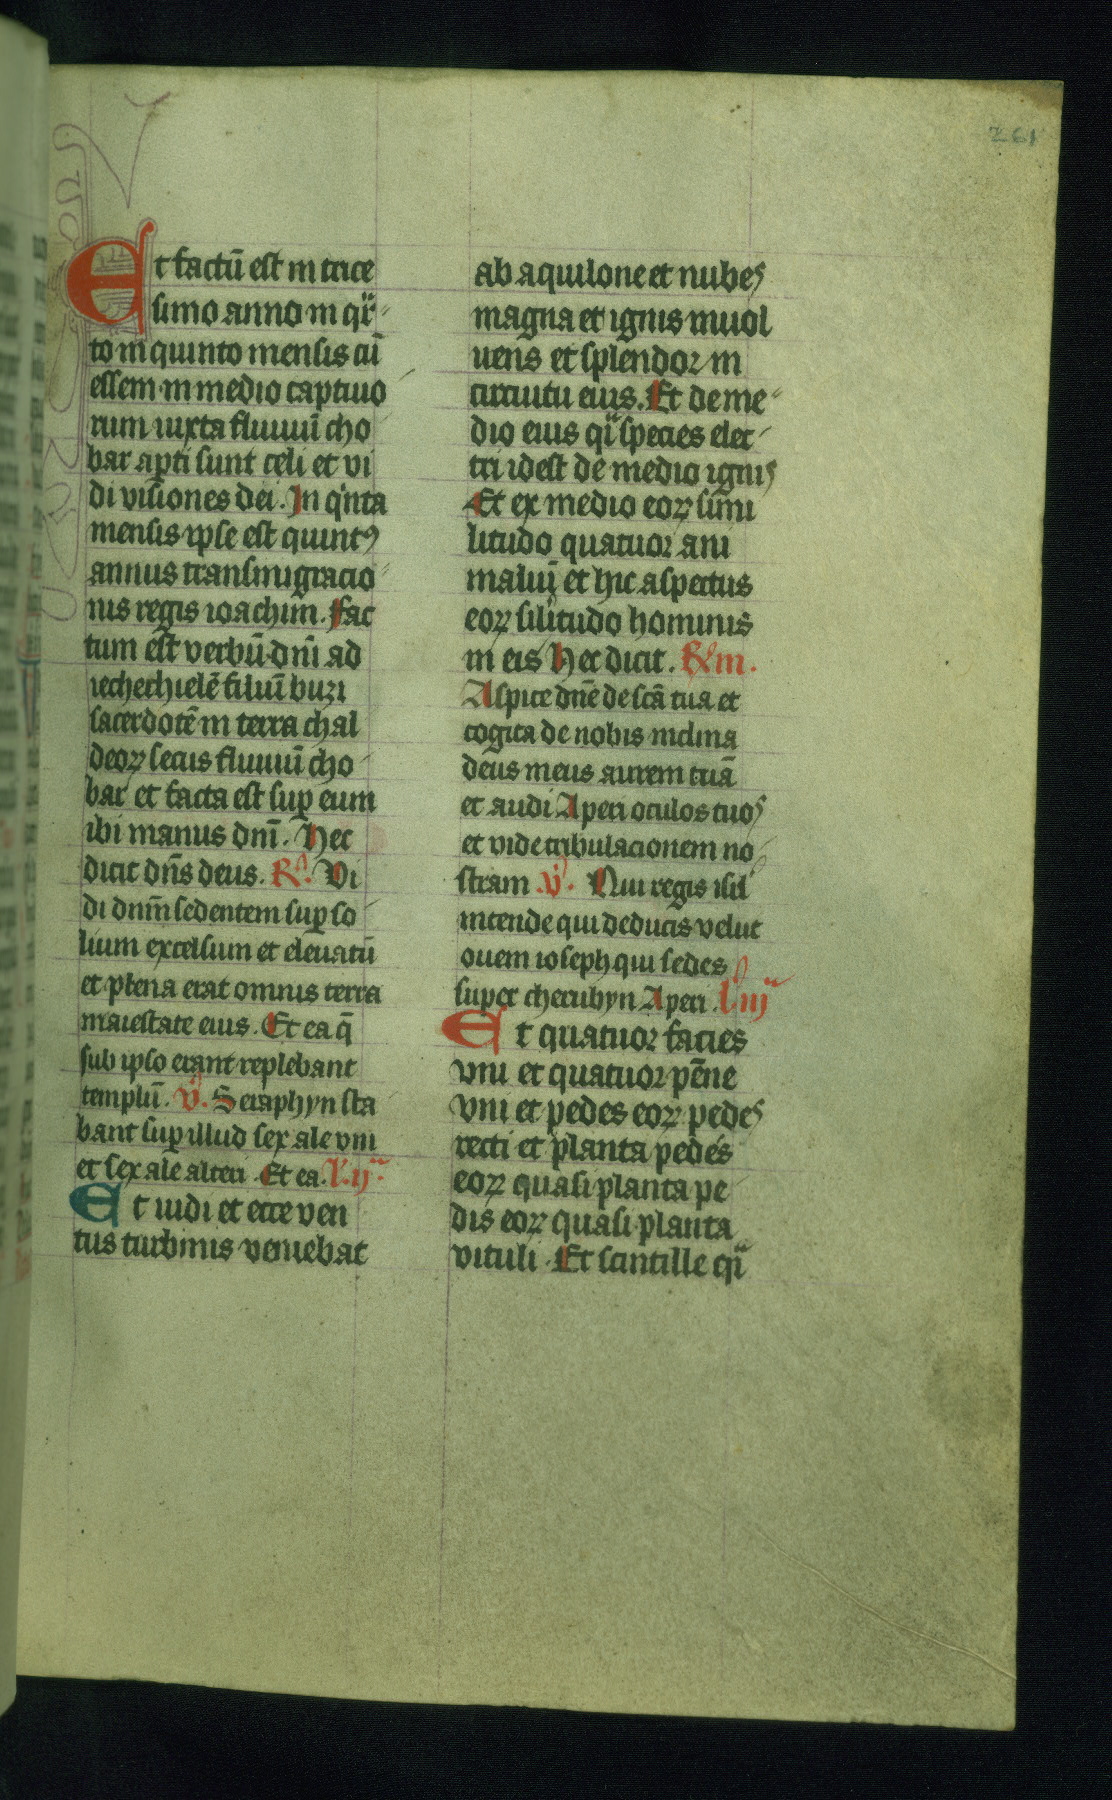 261
Et factū est in trice
simo anno in qᷓr
to in quinto mensis cū
essem in medio captiuo
rum iuxta fluuiū cho
bar aꝑti sunt celi et vi
di visiones dei. In q'nta
mensis ipse est quintꝰ
annus transmigracio
nis regis ioachim. Fac
tum est verbū dn̄i ad
iechechielē filiū buzi
sacerdotē in terra chal
deoꝝ secus fluuiū cho
bar et facta est suꝑ eum
ibi manus dn̄i. Hec
dicit dn̄s deus. R̷. Vi
di dnm̄ sedentem suꝑ so
lium excelsum et eleuatū
et plena erat omnis terra
maiestate eius. Et ea q̄
sub ipso erant replebant
templū. V̷. Seraphyn sta
bant suꝑ illud sex ale vni
et sex ale alteri. Et ea. l'. ij.
Et uidi et ecce ven
tus turbinis veniebat
ab aquilone et nubes
magna et ignis inuol
uens et splendor in
circuitu eius. Et de me
dio eius qᷓi species elec
tri idest de medio ignis
Et ex medio eoꝝ simi
litudo quatuor ani
maliū et hic aspectus
eoꝝ silitudo hominis
in eis Hec dicit. R̷m.
Aspice dn̄e de scā tua et
cogita de nobis inclina
deus meus aurem tuā
et audi Aperi oculos tuos
et vide tribulacionem no
stram. V̷. Qui regis isrl'
intende qui deducis velut
ouem ioseph qui sedes
super cherubyn Aperi. l'. iij
Et quatuor facies
vni et quatuor pēne
vni et pedes eoꝝ pedes
recti et planta pedes
eoꝝ quasi planta pe
dis eoꝝ quasi planta
vituli. Et scintille qᷓi